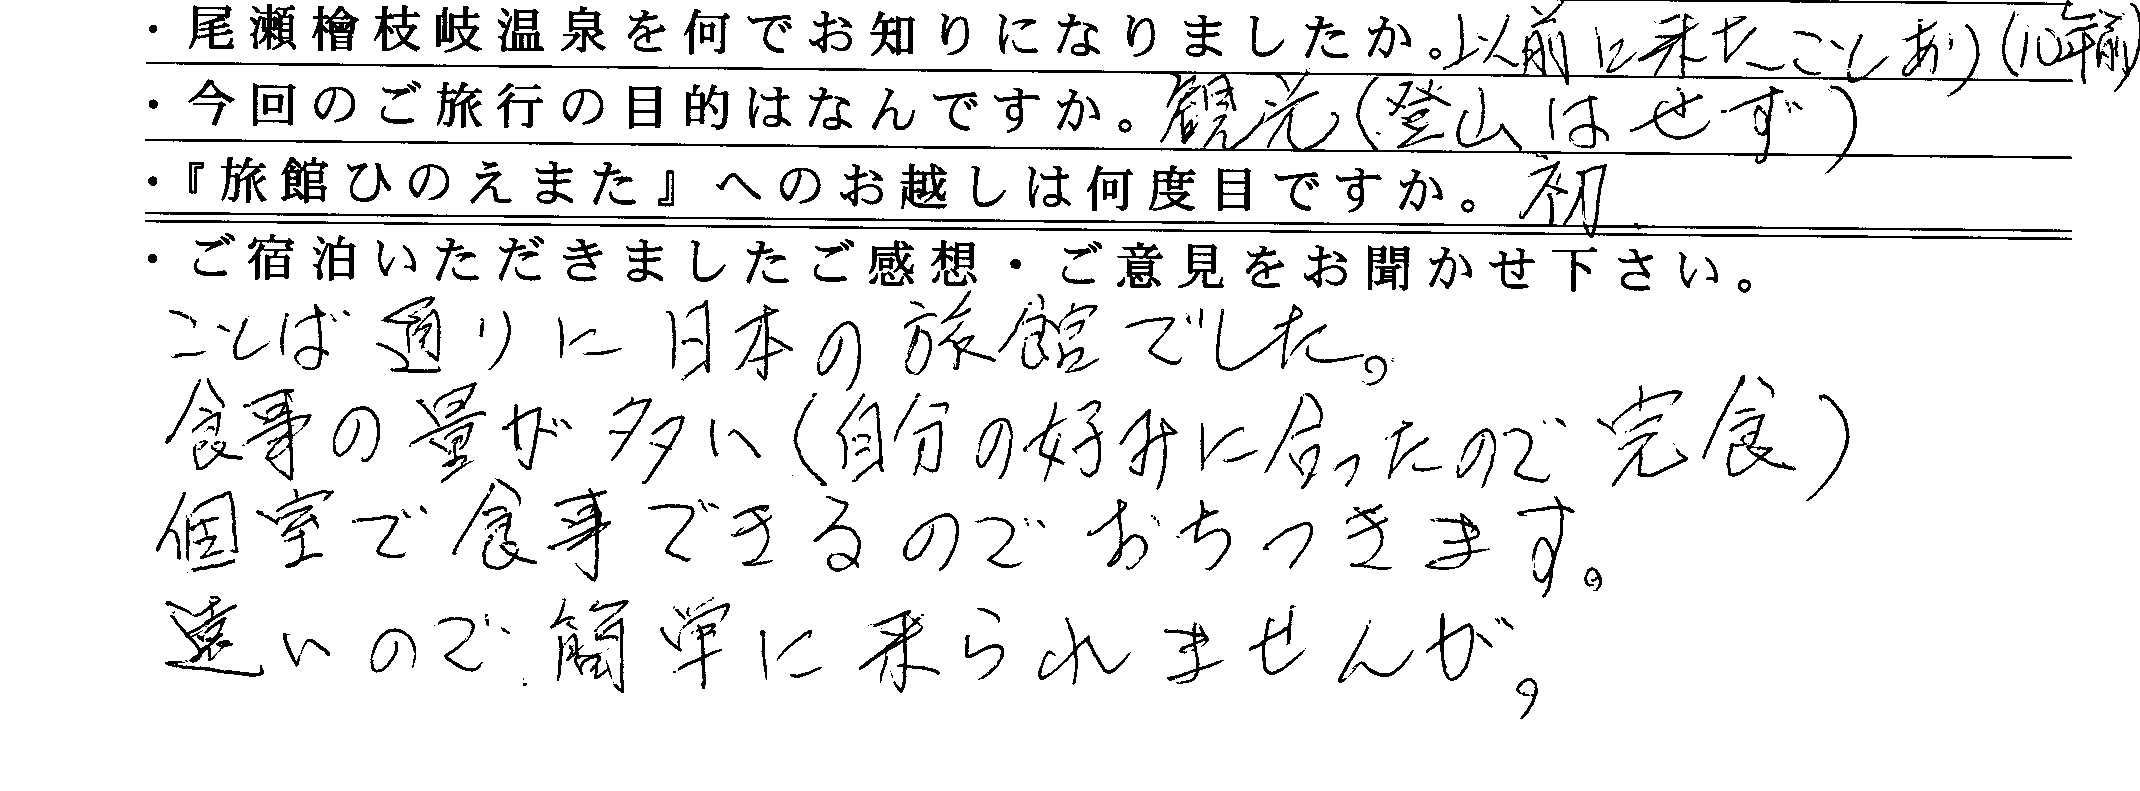 ・尾瀬檜枝岐温泉を何でお知りになりましたか。以前に来たことあり(10年前)
・今回のご旅行の目的はなんですか。観光(登山はせず)
・『旅館ひのえまた』へのお越しは何度目ですか。初
・ご宿泊いただきましたご感想・ご意見をお聞かせ下さい。
ことば通りに日本の旅館でした。
食事の量が多い(自分の好みに合ったので完食)
個室で食事できるのでおちつきます。
遠いので簡単に来られませんが,